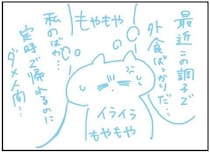 最近この調子で
外食ばっかりだ…
もやもや
私のばか…
定時で帰れるのに
ダメ人間…
イライラ
もやもや